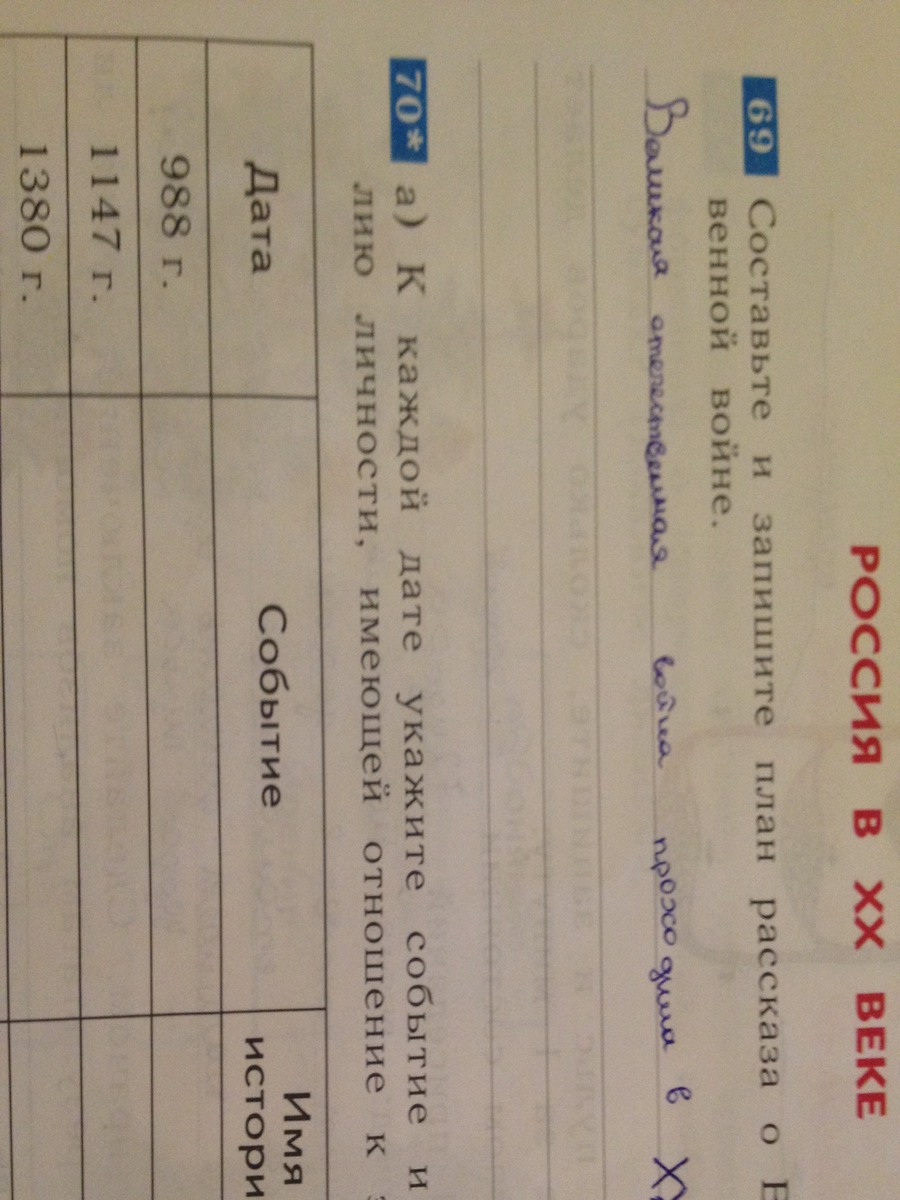 РОССИЯ В XX ВЕКЕ
69 Составьте и запишите план рассказа о В
венной войне.
Великая отечественная война проходила в X
70* а) К каждой дате укажите событие и
лию личности, имеющей отношение к
Дата Событие Имя
истори
988 г.
1147 г.
1380 г.